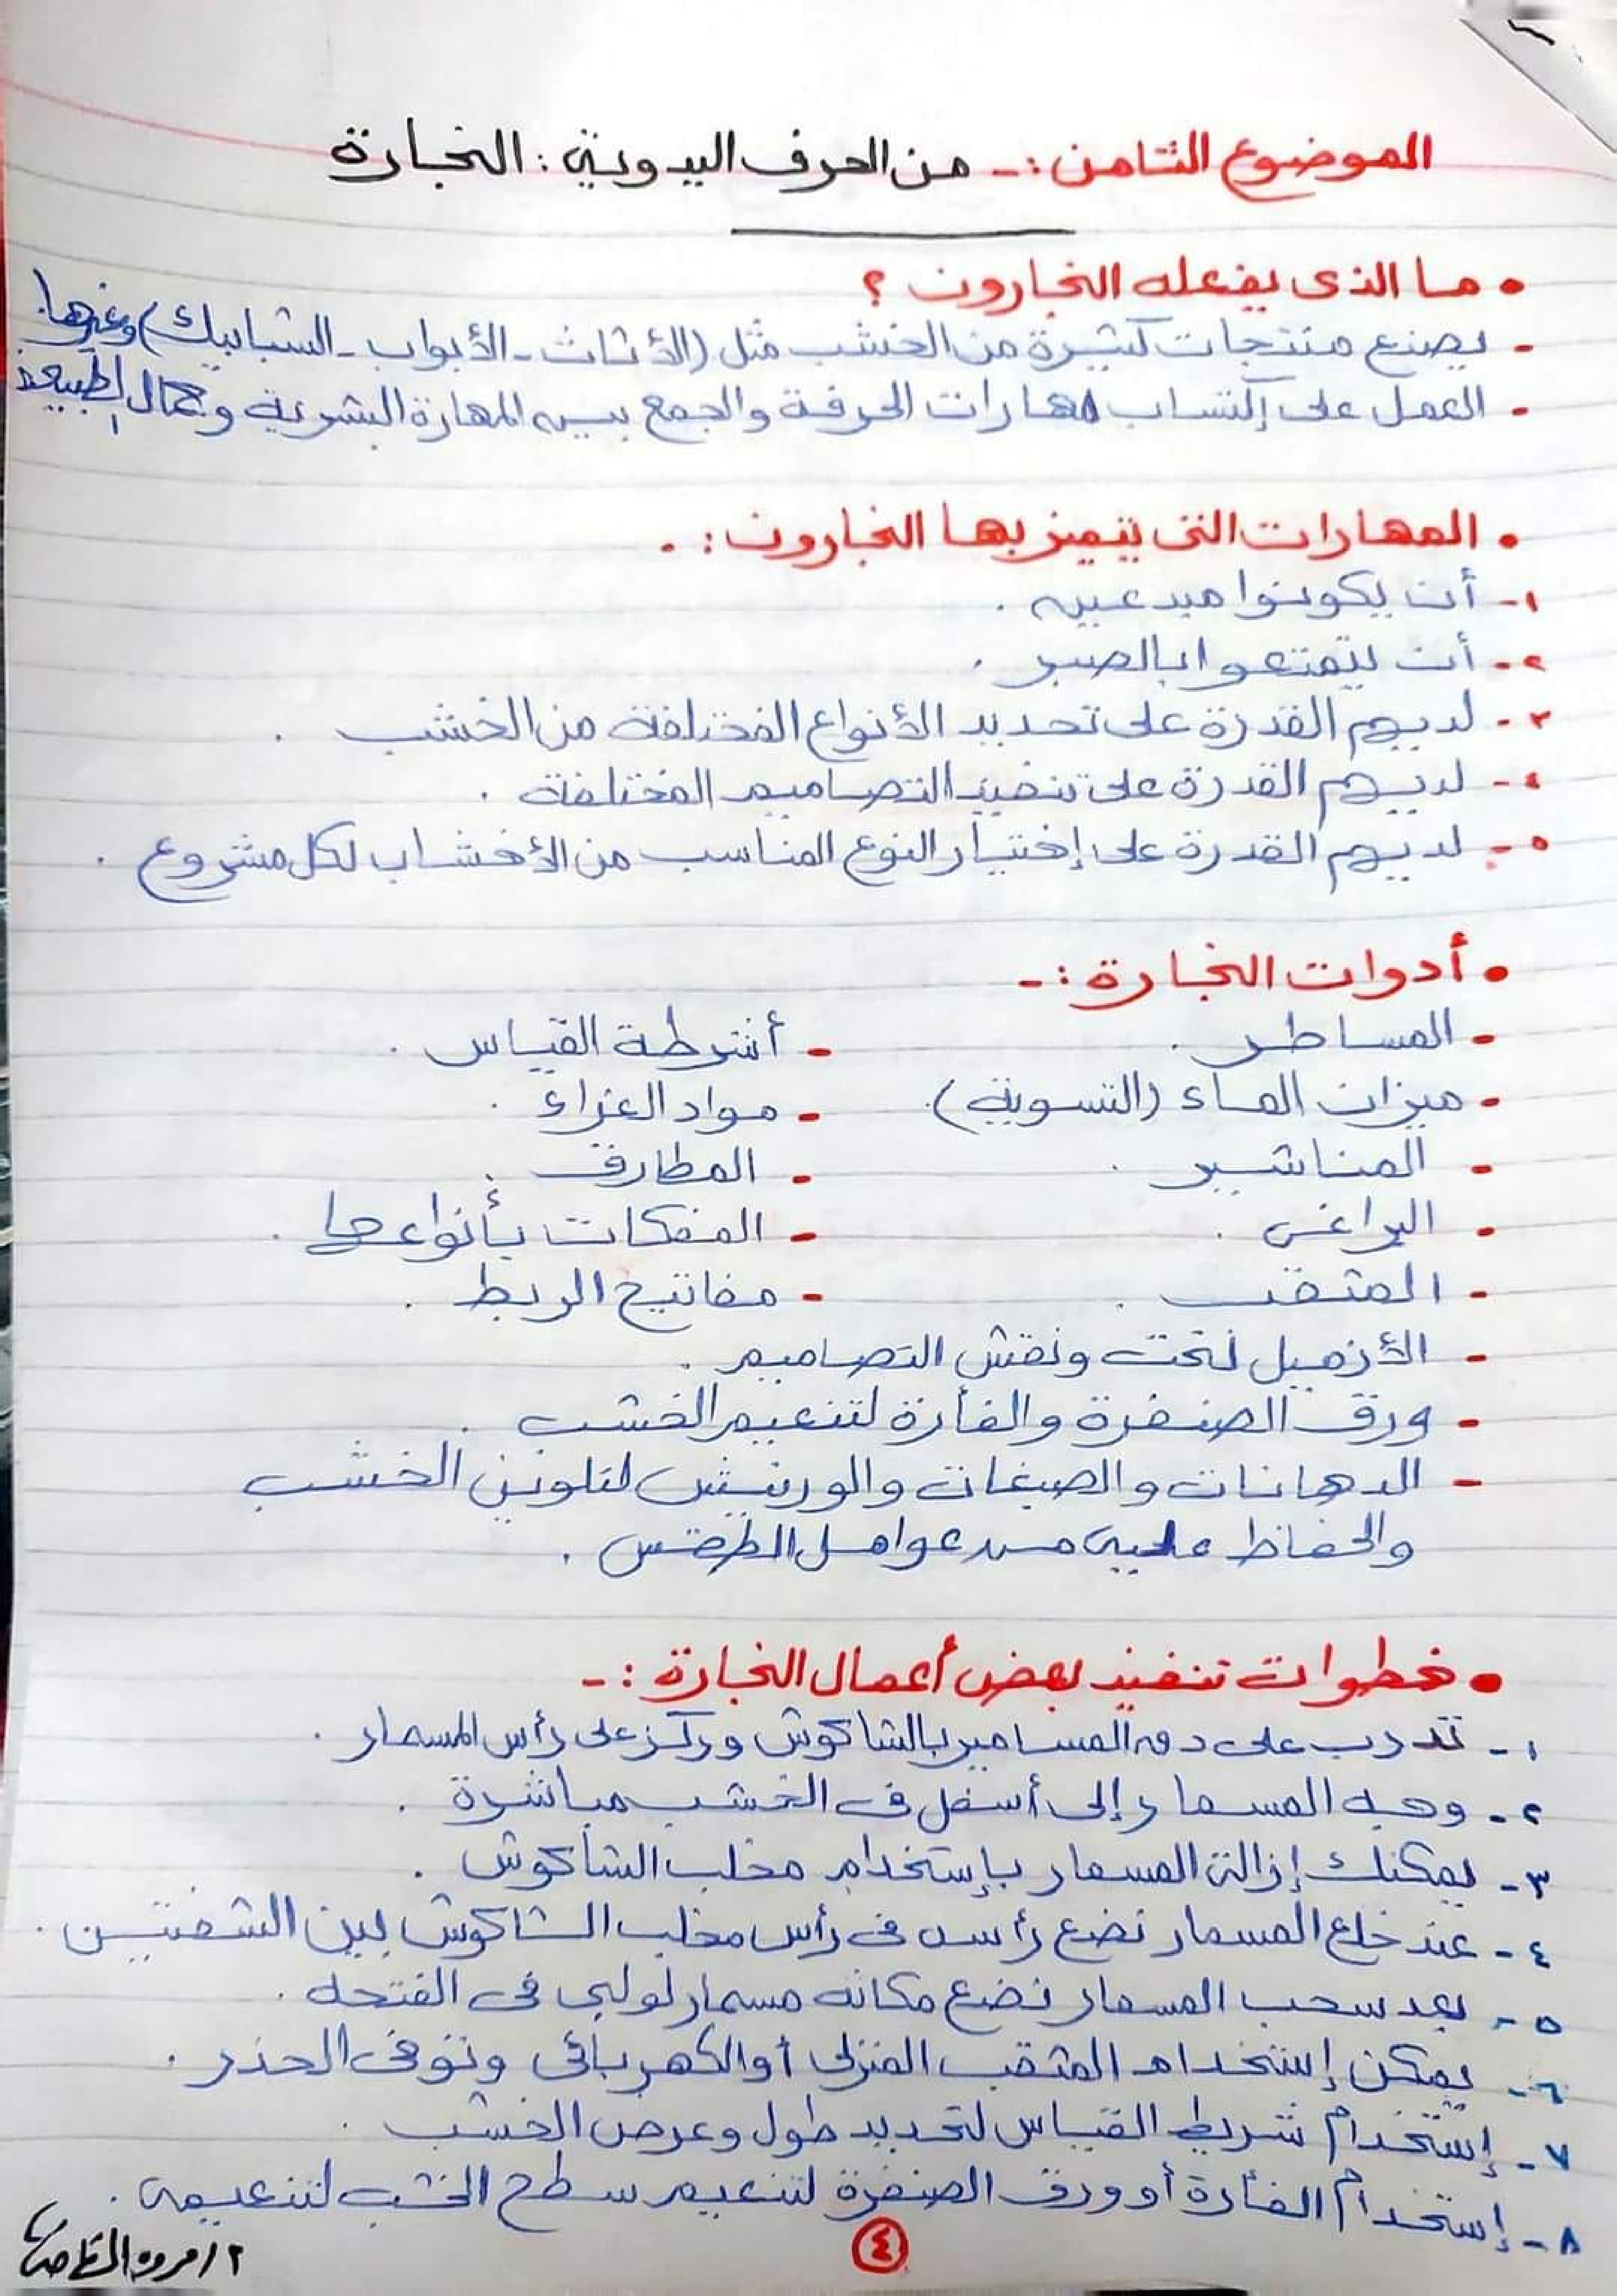 الموضوع الثامن :- من الحرف اليدوية : النجارة
• ما الذى يفعله النجارون ؟
- يصنع منتجات كثيرة من الخشب مثل (الأثاث - الأبواب - الشبابيك) وغيرها.
- العمل على إكتساب مهارات الحرفة والجمع بين المهارة البشرية وجمال الطبيعة
• المهارات التى يتميز بها النجارون : .
١- أن يكونوا مبدعين .
٢- أن يتمتعوا بالصبر .
٣- لديهم القدرة على تحديد الأنواع المختلفة من الخشب .
٤- لديهم القدرة على تنفيذ التصاميم المختلفة .
٥- لديهم القدرة على إختيار النوع المناسب من الأخشاب لكل مشروع .
• أدوات النجارة :-
- المساطر . - أشرطة القياس .
- ميزان الماء (التسوية) . - مواد الغراء .
- المناشير . - المطارق .
- البراغى . - المفكات بأنواعها .
- المثقب . - مفاتيح الربط .
- الأزميل لنحت ونقش التصاميم .
- ورق الصنفرة والفأرة لتنعيم الخشب .
- الدهانات والصبغات والورنيش لتلوين الخشب
والحفاظ عليه من عوامل الطقس .
• خطوات تنفيذ بعض أعمال النجارة :-
١- تدرب على دق المسامير بالشاكوش وركز على رأس المسمار .
٢- وجه المسمار إلى أسفل فى الخشب مباشرة .
٣- يمكنك إزالة المسمار بإستخدام مخلب الشاكوش .
٤- عند خلع المسمار نضع رأسه فى رأس مخلب الشاكوش بين الشفتين .
٥- بعد سحب المسمار نضع مكانه مسمار لولبى فى الفتحة .
٦- يمكن إستخدام المثقب المنزلى أو الكهربائى وتوخى الحذر .
٧- إستخدام شريط القياس لتحديد طول وعرض الخشب .
٨- إستخدام الفأرة أو ورق الصنفرة لتنعيم سطح الخشب لتنعيمه .
٤
أ/مروة